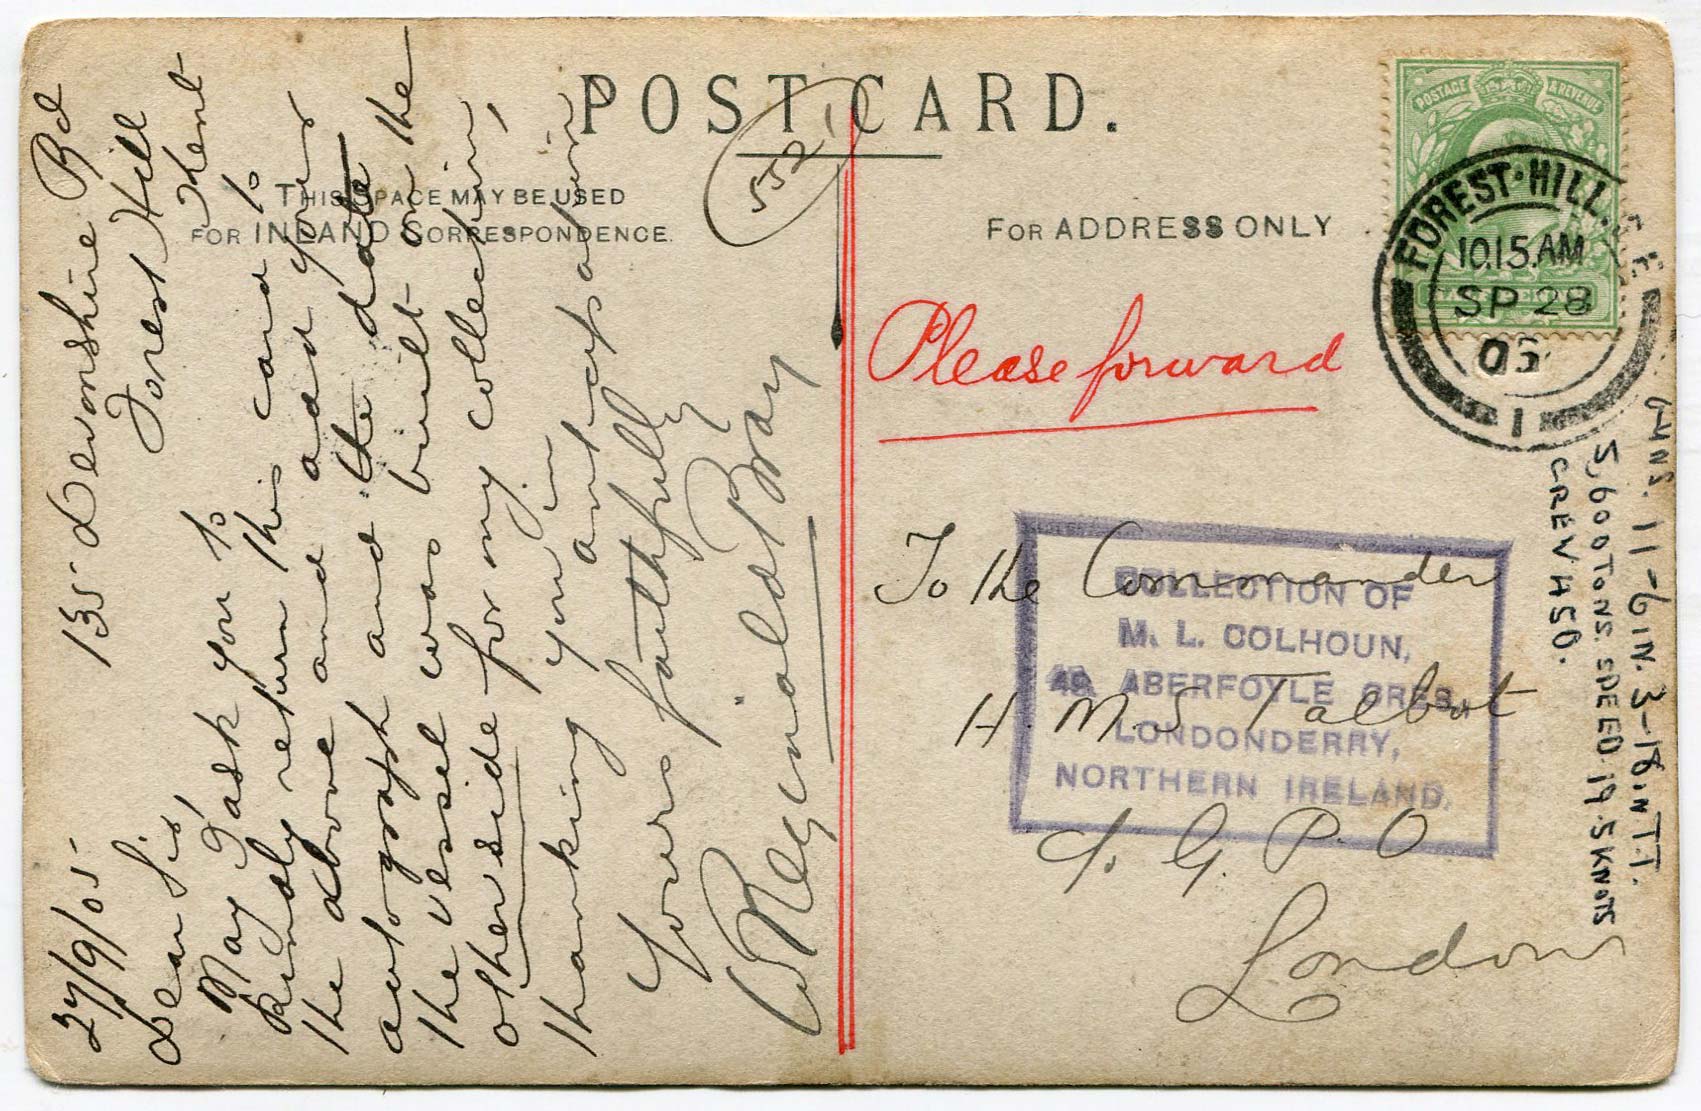 POST CARD.
THIS SPACE MAY BE USED
FOR INLAND CORRESPONDENCE.
FOR ADDRESS ONLY
552
135 Devonshire Rd
Forest Hill
Kent
27/9/05
Dear Sir
May I ask you to
kindly return this card to
the above and add your
autograph and the date
the vessel was built on the
other side for my collection,
thanking you in anticipation
Yours faithfully
W Reginald Bray
Please forward
To the Commander
H.M.S Talbot
c/o G.P.O
London
POSTAGE & REVENUE
FOREST·HILL. S.E
10.15.AM
SP 28
05
1
COLLECTION OF
M. L. COLHOUN,
49, ABERFOYLE CRES.,
LONDONDERRY,
NORTHERN IRELAND.
GUNS. 11-6IN. 3-18IN T.T.
5,600 TONS. SPEED 19.5 KNOTS
CREW 450.